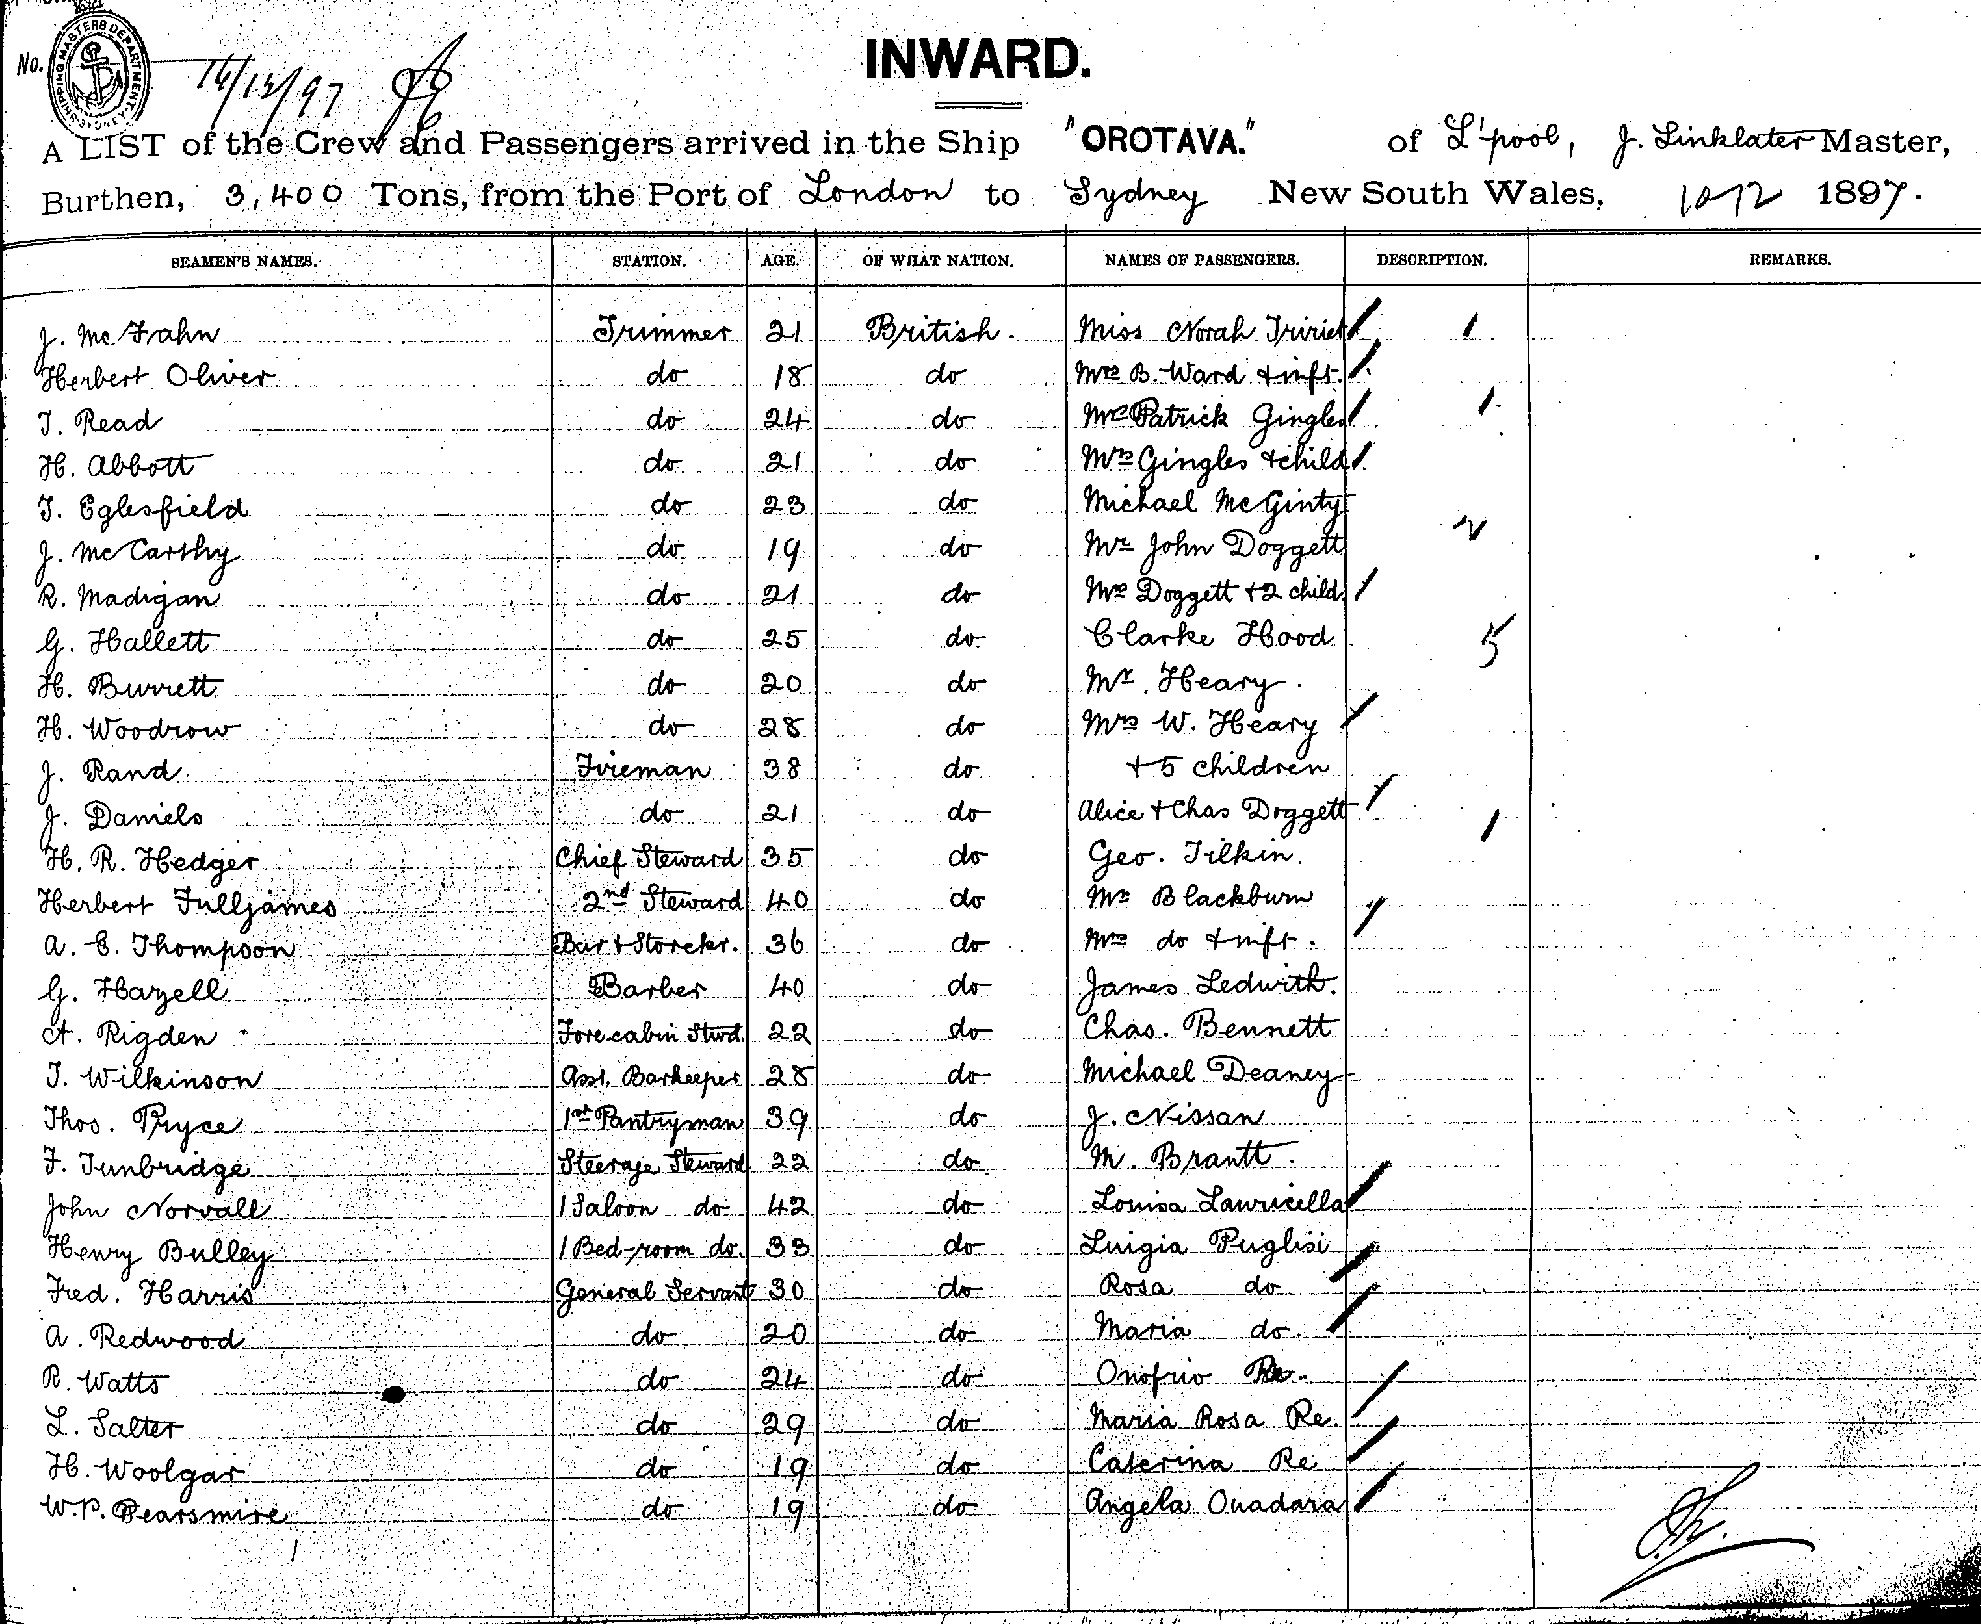 No. SHIPPING MASTERS DEPARTMENT SYDNEY 16/12/97
INWARD.
A LIST of the Crew and Passengers arrived in the Ship "OROTAVA." of L'pool, J. Linklater Master,
Burthen, 3,400 Tons, from the Port of London to Sydney New South Wales, 1897.
SEAMEN'S NAMES. STATION. AGE. OF WHAT NATION. NAMES OF PASSENGERS. DESCRIPTION. REMARKS.
J. Mc Trimmer 21 British. Miss Norah 1
Herbert Oliver do 18 do Mrs B. Ward + inft.
T. Read do 24 do Mr Patrick Gingles 1
H. Abbott do 21 do Mrs Gingles + child
T. Eglesfield do 23 do Michael McGinty
J. McCarthy do 19 do Mr John Doggett 2
R. Madigan do 21 do Mrs Doggett + 2 child
G. Hallett do 25 do Clarke Hood 5
H. Burrett do 20 do Mr. Heary.
H. Woodrow do 28 do Mrs W. Heary
J. Rand. Fireman 38 do + 5 children
J. Daniels do 21 do Alice + Chas Doggett 1
H. R. Hedger Chief Steward 35 do Geo. Tilkin.
Herbert Fulljames 2nd Steward 40 do Mr Blackburn
A. C. Thompson Bar + Storekr. 36 do Mrs do + inft.
G. Hazell Barber 40 do James Ledwith.
A. Rigden Fore-cabin Stwd. 22 do Chas. Bennett
T. Wilkinson Asst. Barkeeper 28 do Michael Deaney
Thos. Pryce 1st Pantryman 39 do J. Nissan
F. Tunbridge Steerage Steward 22 do M. Brantt.
John Norvall 1 Saloon do 42 do Louisa Lauricella
Henry Bulley 1 Bed-room do. 33 do Luigia Puglisi
Fred. Harris General Servant 30 do Rosa do
A. Redwood do 20 do Maria do.
R. Watts do 24 do Onofrio Re.
L. Salter do 29 do Maria Rosa Re.
H. Woolgar do 19 do Caterina Re
W.P. Pearsmire do 19 do Angela Quadara